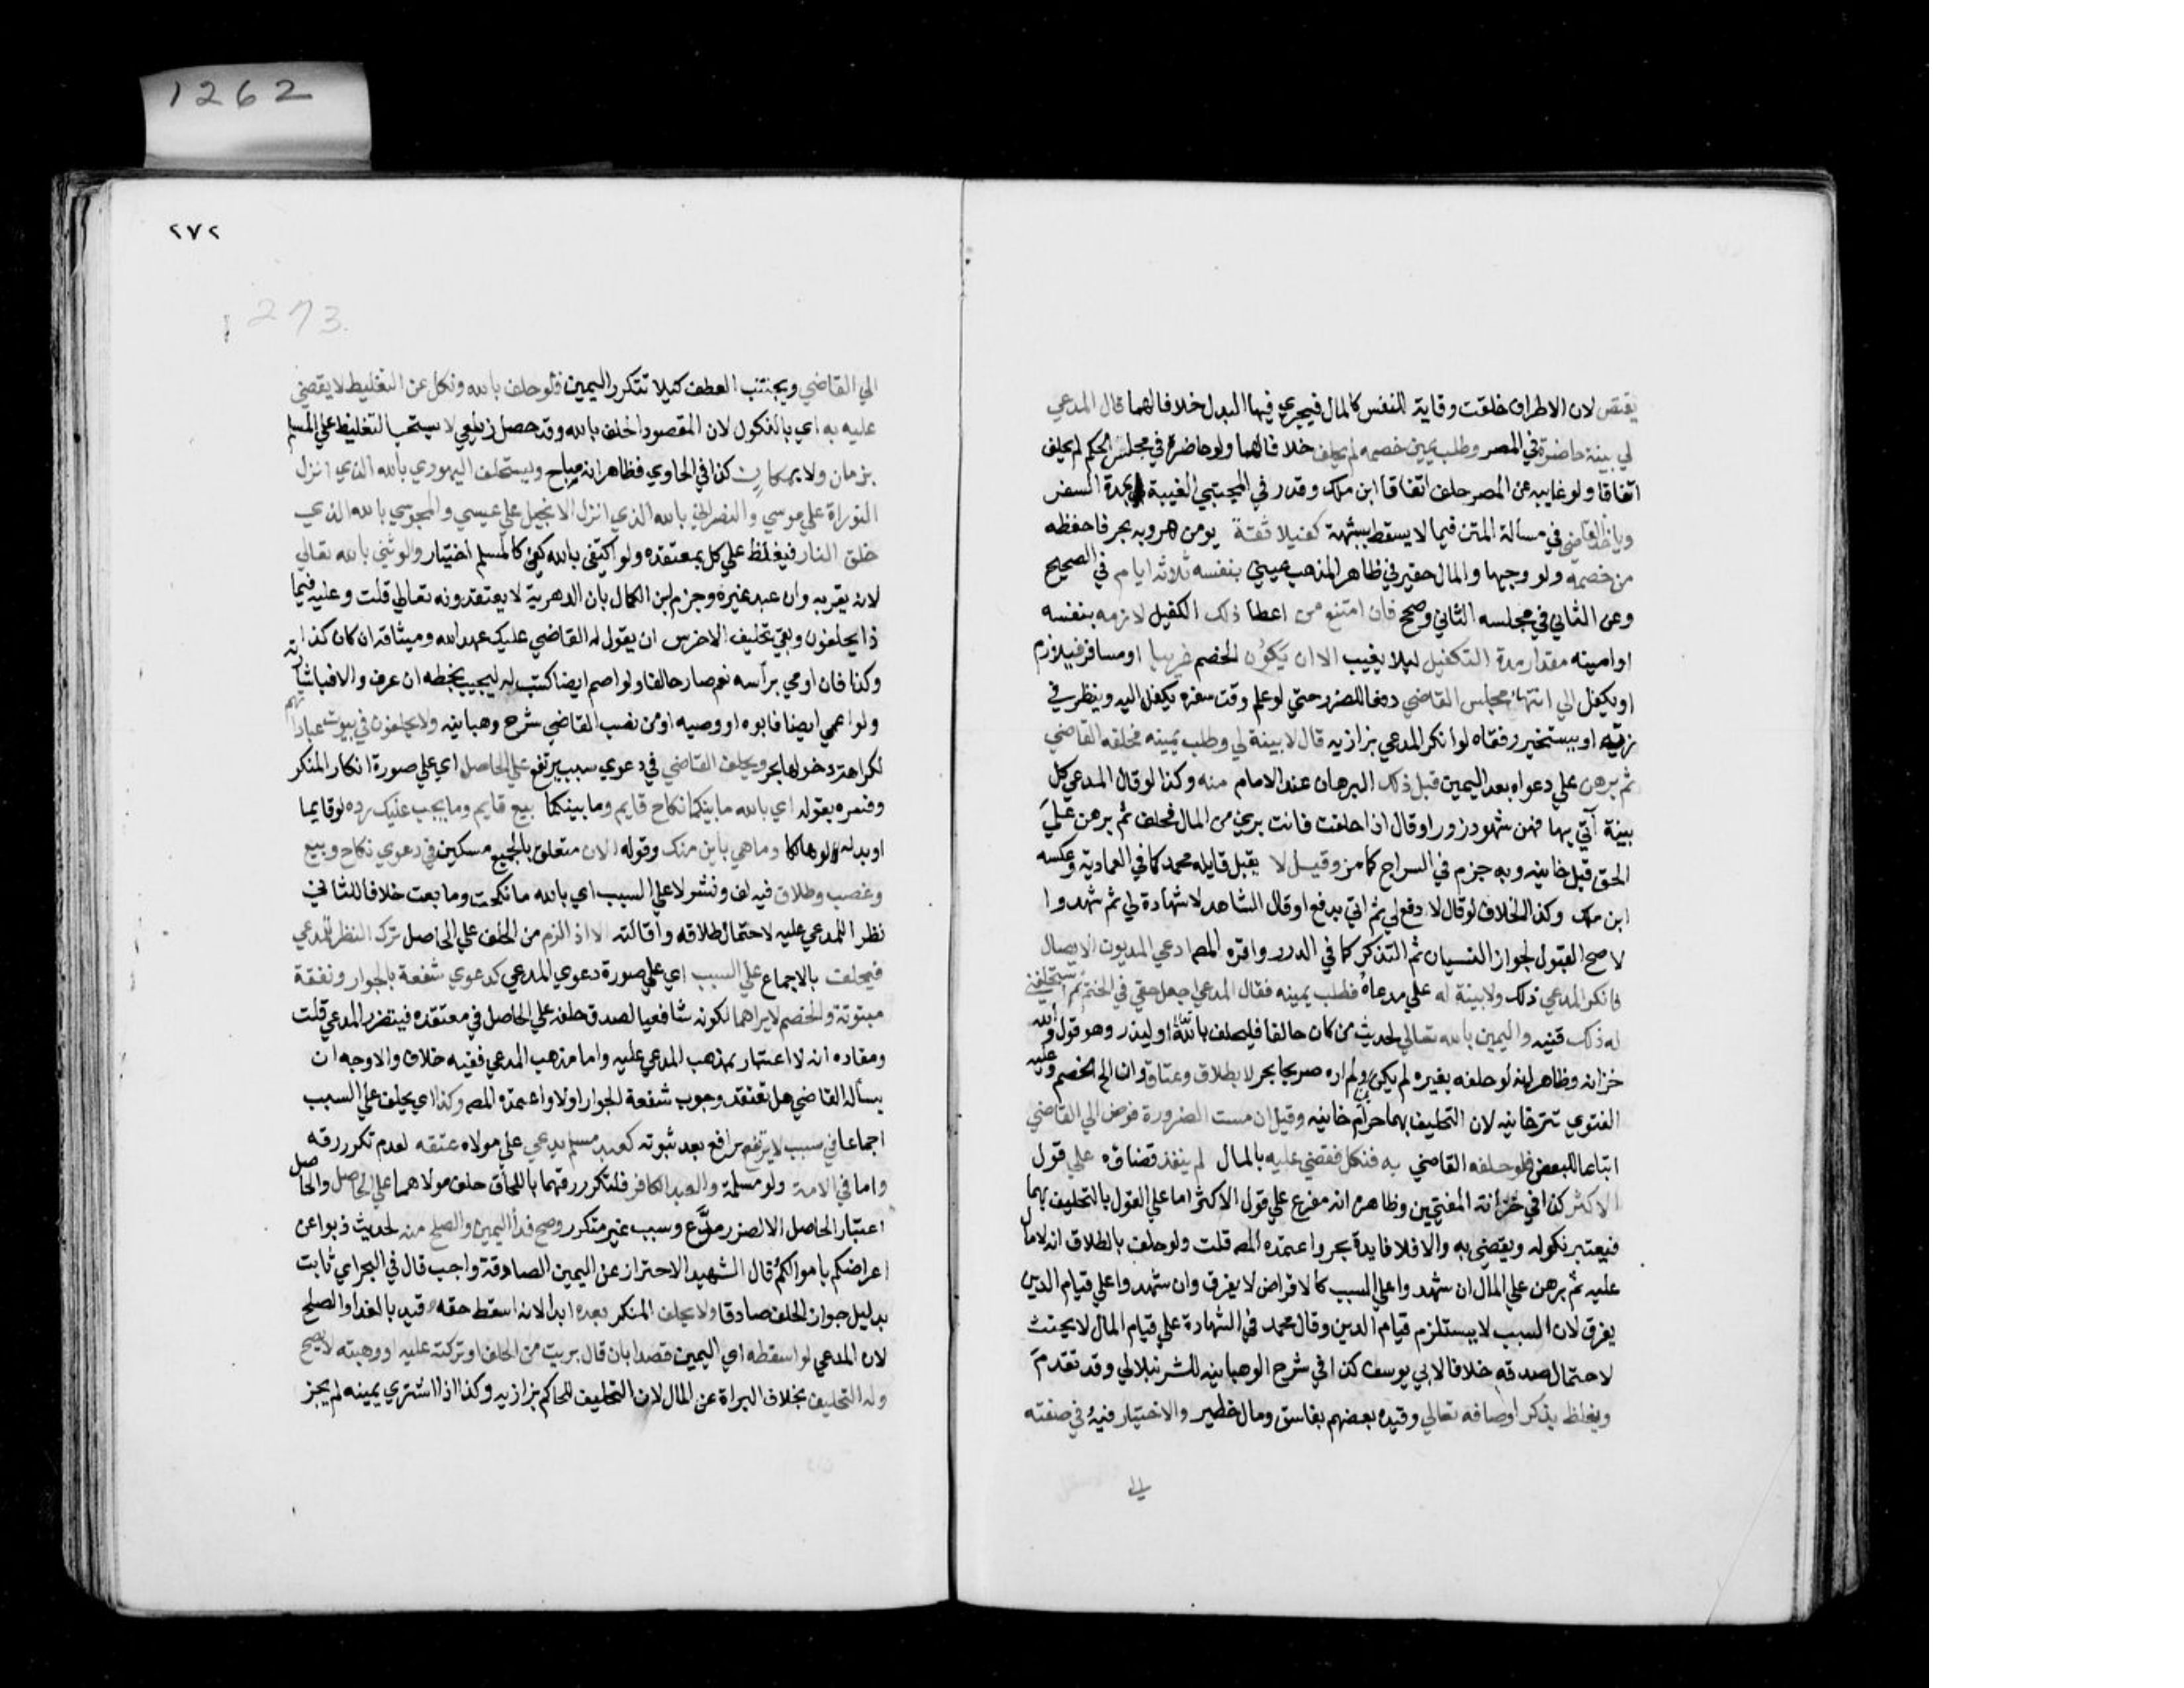 1262
يقتص لان الاطراف خلقت وقاية للنفس كالمال فيجري فيها البدل خلافا لهما قال المدعي
لي بينة حاضرة في المصر وطلب يمين خصمه لم يحلف خلافا لهما ولو حاضرة في مجلس الحكم لم يحلف
اتفاقا ولو غايبه عن المصر حلف اتفاقا ابن ملك وقدر في المجتبي الغيبة بمدة السفر
وياخذ القاضي في مسالة المتن فيما لا يسقط بشبهة كفيلا ثقة يومن هروبه بحر فاحفظه
من خصمه ولو وجيها والمال حقير في ظاهر المذهب عيني بنفسه ثلاثه ايام في الصحيح
وعن الثاني في مجلسه الثاني وصحح فان امتنع من اعطا ذلك الكفيل لازمه بنفسه
او امينه مقدار مدة التكفيل ليلا يغيب الا ان يكون الخصم غريبا او مسافر فيلازم
او يكفل الي انتهاء مجلس القاضي دفعا للضرر حتي لو علم وقت سفره يكفل اليه وينظر في
زيه او يستخبر رفقاه لو انكر المدعي بزازيه قال لا بينة لي وطلب يمينه فحلفه القاضي
ثم برهن علي دعواه بعد اليمين قبل ذلك البرهان عند الامام منه وكذا لو قال المدعي كل
بينة آتي بها فهن شهود زور او قال اذا حلفت فانت بري من المال فحلف ثم برهن علي
الحق قبل خانيه وبه جزم في السراج كما مر وقيل لا يقبل قايله محمد كما في العمادية وعكسه
ابن ملك وكذا الخلاف لو قال لا دفع لي ثم اتي بدفع او قال الشاهد لا شهادة لي ثم شهد وا
لا صح القبول لجواز النسيان ثم التذكر كما في الدرر واقره المص ادعي المديون الايصال
فانكر المدعي ذلك ولا بينة له علي مدعاه فطلب يمينه فقال المدعي اجعل حقي في الختم ثم استحلفني
له ذلك قنيه واليمين بالله تعالي لحديث من كان حالفا فليحلف بالله او ليذر وهو قول والله
خزانه وظاهره انه لو حلفه بغيره لم يكن ولم اره صريحا بحر لا بطلاق وعتاق وان الح الخصم وعليه
الفتوي تترخانيه لان التحليف بهما حرام خانيه وقيل ان مست الضرورة فوض الي القاضي
اتباعا للبعض فلو حلفه القاضي به فنكل فقضي عليه بالمال لم ينفذ قضاؤه علي قول
الاكثر كذا في خزانة المفتيين وظاهره انه مفرع علي قول الاكثر اما علي القول بالتحليف بهما
فيعتبر نكوله ويقضي به والا فلا فايدة بحر واعتمده المص قلت ولو حلف بالطلاق انه لا مال
عليه ثم برهن علي المال ان شهد وا علي السبب كالاقراض لا يفرق وان شهد وا علي قيام الدين
يفرق لان السبب لا يستلزم قيام الدين وقال محمد في الشهادة علي قيام المال لا يحنث
لاحتمال صدقه خلافا لابي يوسف كذا في شرح الوهبانيه للشرنبلالي وقد تقدم
ويغلظ بذكر اوصافه تعالي وقيده بعضهم بفاسق ومال خطير والاختيار فيه في صفته
الي
٢٧٢
273.
الي القاضي ويجتنب العطف كيلا تتكرر اليمين فلو حلف بالله ونكل عن التغليظ لا يقضي
عليه به اي بالنكول لان المقصود الحلف بالله وقد حصل زيلعي لا يستحب التغليظ علي المسلم
بزمان ولا بمكان كذا في الحاوي فظاهره انه مباح ويستحلف اليهودي بالله الذي انزل
التوراة علي موسي والنصراني بالله الذي انزل الانجيل علي عيسي والمجوسي بالله الذي
خلق النار فيغلظ علي كل بمعتقده ولو اكتفي بالله كفي كالمسلم اختيار والوثني بالله تعالي
لانه يقر به وان عبد غيره وجزم ابن الكمال بان الدهرية لا يعتقدونه تعالي قلت وعليه فيما
ذا يحلفون وبقي تحليف الاخرس ان يقول له القاضي عليك عهد الله وميثاقه ان كان كذا
وكذا فان اومي براسه نعم صار حالفا ولو اصم ايضا كتب له ليجيب بخطه ان عرف والا فباشارته
ولو اعمي ايضا فابوه او وصيه او من نصب القاضي شرح وهبانيه ولا يحلفون في بيوت عباداتهم
لكراهة دخولها بحر ويحلف القاضي في دعوي سبب يرتفع علي الحاصل اي علي صورة انكار المنكر
وفسره بقوله اي بالله ما بينكما نكاح قايم وما بينكما بيع قايم وما يجب عليك رده لو قايما
او بدله لو هالكا وما هي باين منك وقوله الان متعلق بالجميع مسكين في دعوي نكاح وبيع
وغصب وطلاق فيه لف ونشر لا علي السبب اي بالله ما نكحت وما بعت خلافا للثاني
نظرا للمدعي عليه لاحتمال طلاقه واقالته الا اذا لزم من الحلف علي الحاصل ترك النظر للمدعي
فيحلف بالاجماع علي السبب اي علي صورة دعوي المدعي كدعوي شفعة بالجوار ونفقة
مبتوتة والخصم لا يراهما لكونه شافعيا لصدق حلفه علي الحاصل في معتقده فيتضرر المدعي قلت
ومفاده انه لا اعتبار بمذهب المدعي عليه واما مذهب المدعي ففيه خلاف والاوجه ان
يساله القاضي هل تعتقد وجوب شفعة الجوار اولا واعتمده المص وكذا اي يحلف علي السبب
اجماعا في سبب لا يرتفع برافع بعد ثبوته كعبد مسلم يدعي علي مولاه عتقه لعدم تكرر رقه
واما في الامة ولو مسلمة والعبد الكافر فلتكرر رقهما باللحاق حلف مولاهما علي الحاصل والحاصل
اعتبار الحاصل الا لضرر مدع وسبب غير متكرر وصح فداُ اليمين والصلح منه لحديث ذبوا عن
اعراضكم باموالكم قال الشهيد الاحتراز عن اليمين الصادقة واجب قال في البحر اي ثابت
بدليل جواز الحلف صادقا ولا يحلف المنكر بعده ابدا لانه اسقط حقه وقيد بالفدا والصلح
لان المدعي لو اسقطه اي اليمين قصدا بان قال بريت من الحلف او تركته عليه او وهبته لا يصح
وله التحليف بخلاف البراة عن المال لان التحليف للحاكم بزازيه وكذا اذا اشتري يمينه لم يجز